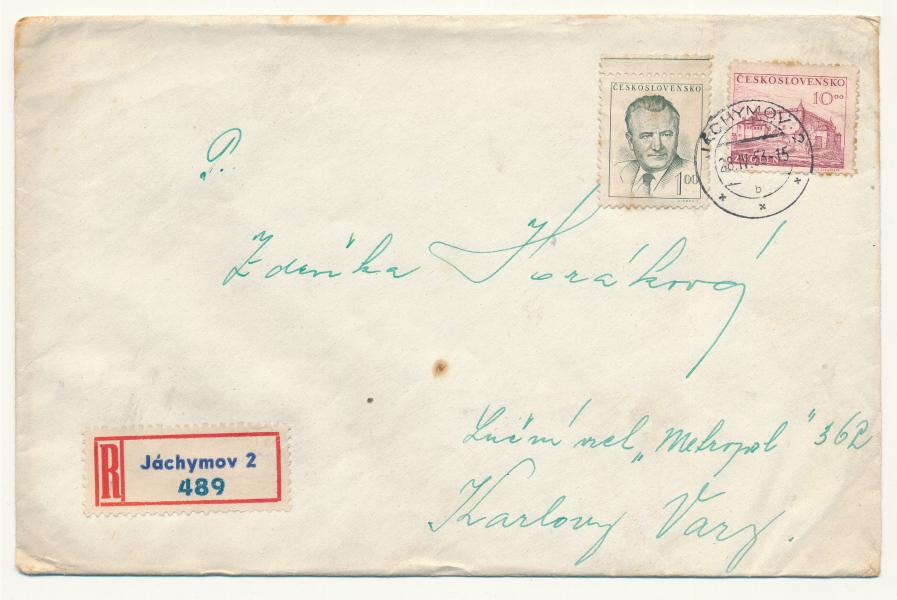 ČESKOSLOVENSKO
1.00
ČESKOSLOVENSKO
10.00
JÁCHYMOV 2
b
P.
Zdeňka Horáková
"Metropol" 362
Karlovy Vary.
R
Jáchymov 2
489